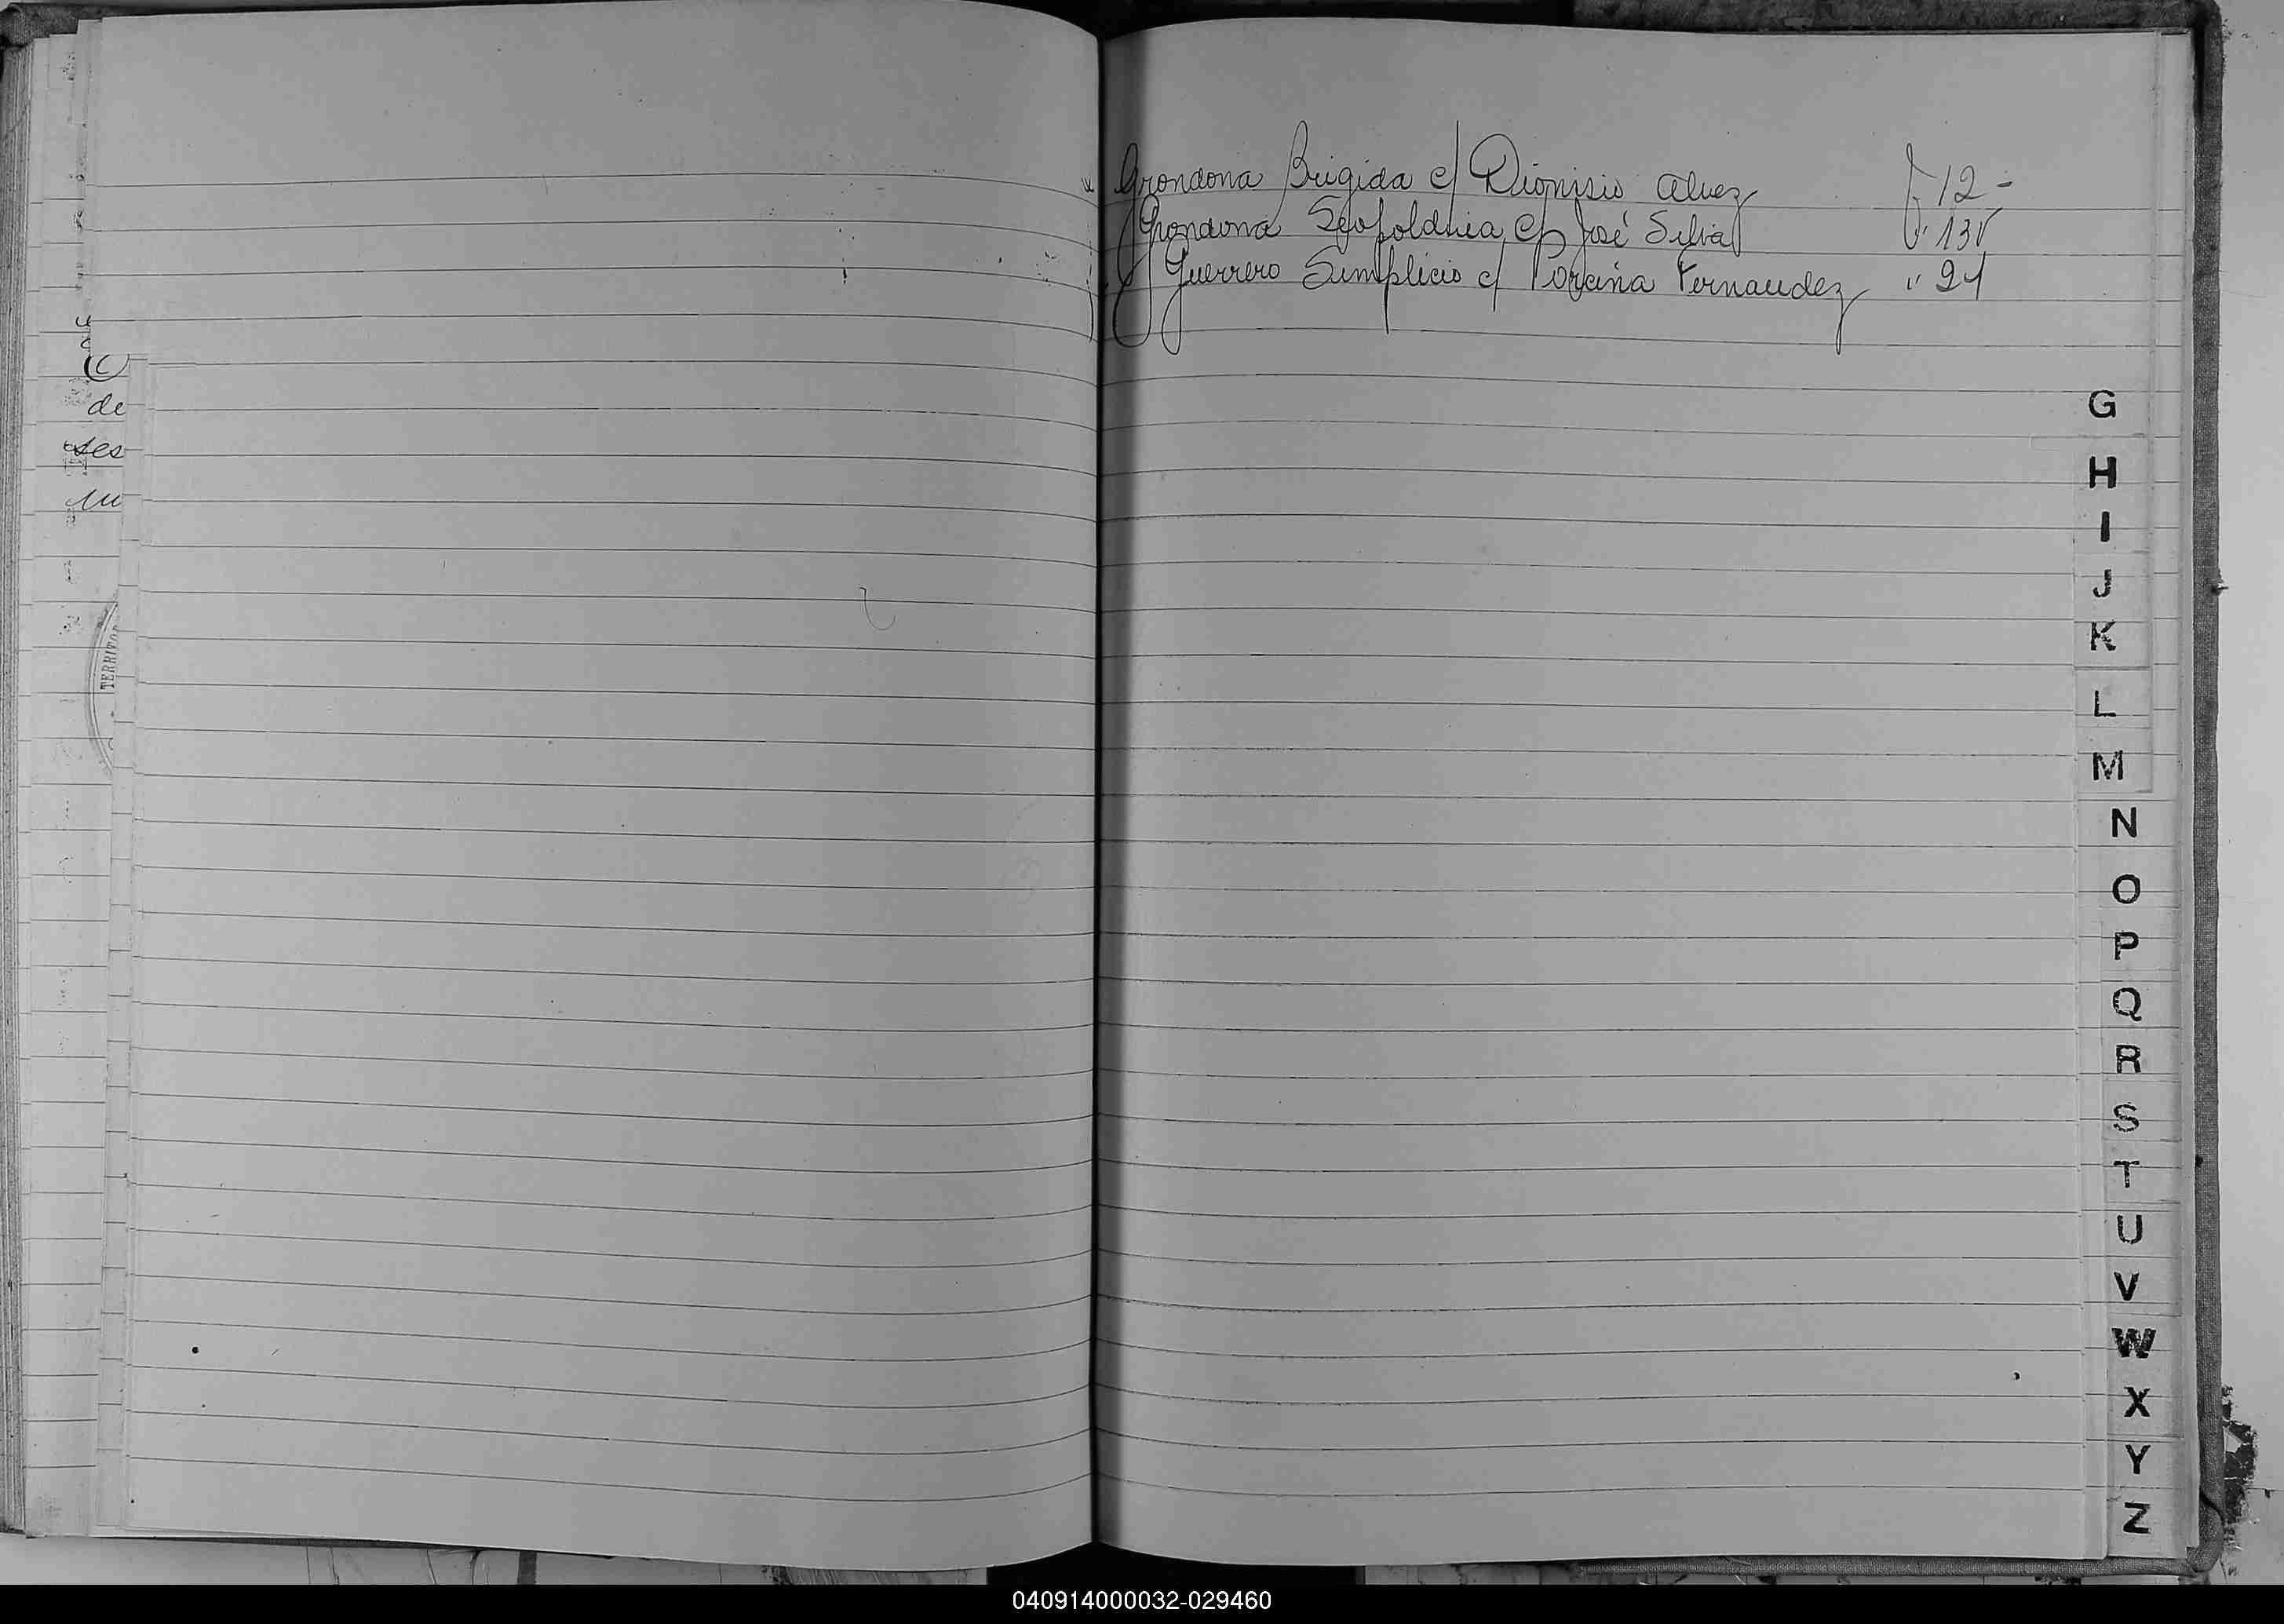 de
ses
TERRITOR
Grondona Brigida c/ Dionisio Alvez f 12 -
Grondona Leopoldina c/ José Silva " 13v
Guerrero Simplicio c/ Fernandez " 24
G
H
I
J
K
L
M
N
O
P
Q
R
S
T
U
V
W
X
Y
Z
040914000032-029460